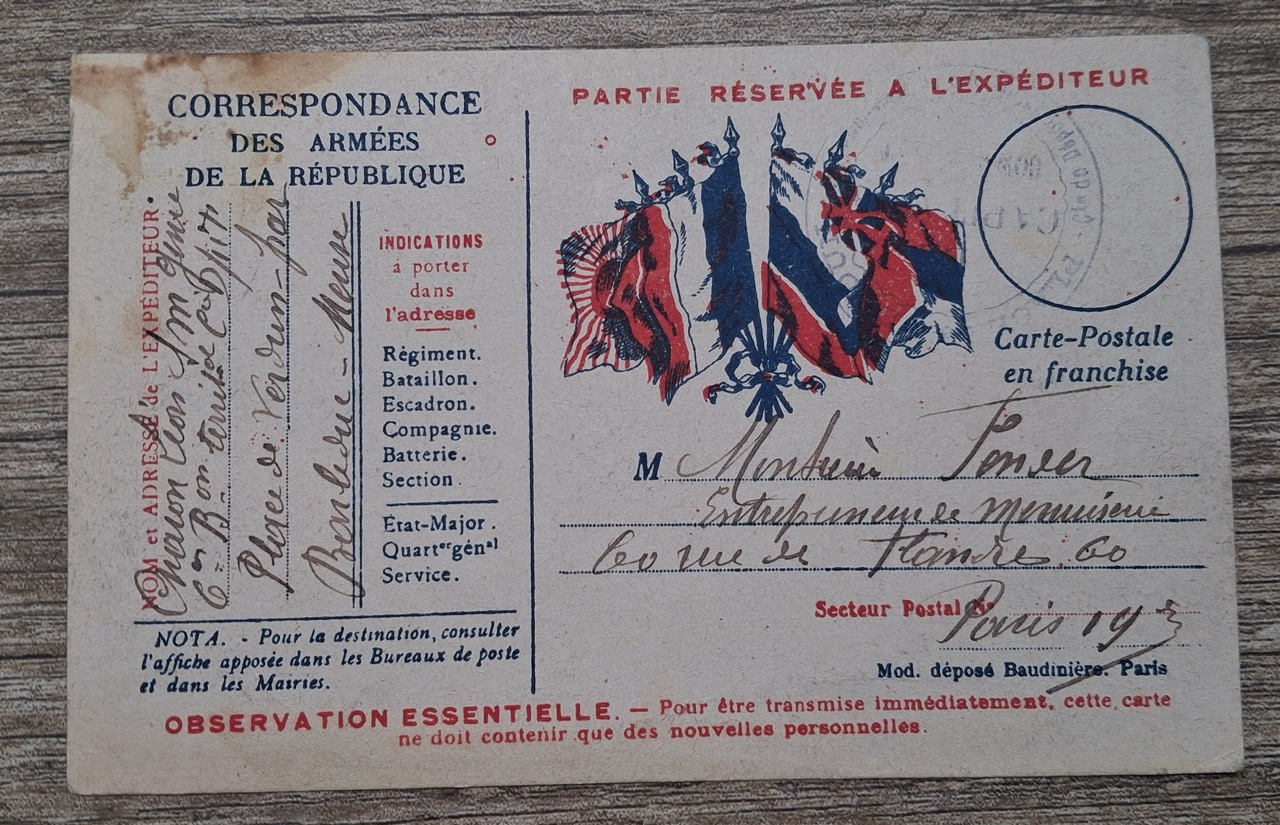 CORRESPONDANCE
DES ARMÉES
DE LA RÉPUBLIQUE
NOM et ADRESSE de L'EXPÉDITEUR.
Charion Léon
6 Bon
Place de Verdun - par
- Meuse
INDICATIONS
à porter
dans
l'adresse
Régiment.
Bataillon.
Escadron.
Compagnie.
Batterie.
Section.
État-Major.
Quartergénal
Service.
NOTA. - Pour la destination, consulter
l'affiche apposée dans les Bureaux de poste
et dans les Mairies.
PARTIE RÉSERVÉE A L'EXPÉDITEUR
Carte-Postale
en franchise
M Monsieur
Entrepreneur de Menuiserie
60 rue de Flandre. 60
Secteur Postal No
Paris 19e
Mod. déposé Baudinière. Paris
OBSERVATION ESSENTIELLE. — Pour être transmise immédiatement, cette carte
ne doit contenir que des nouvelles personnelles.